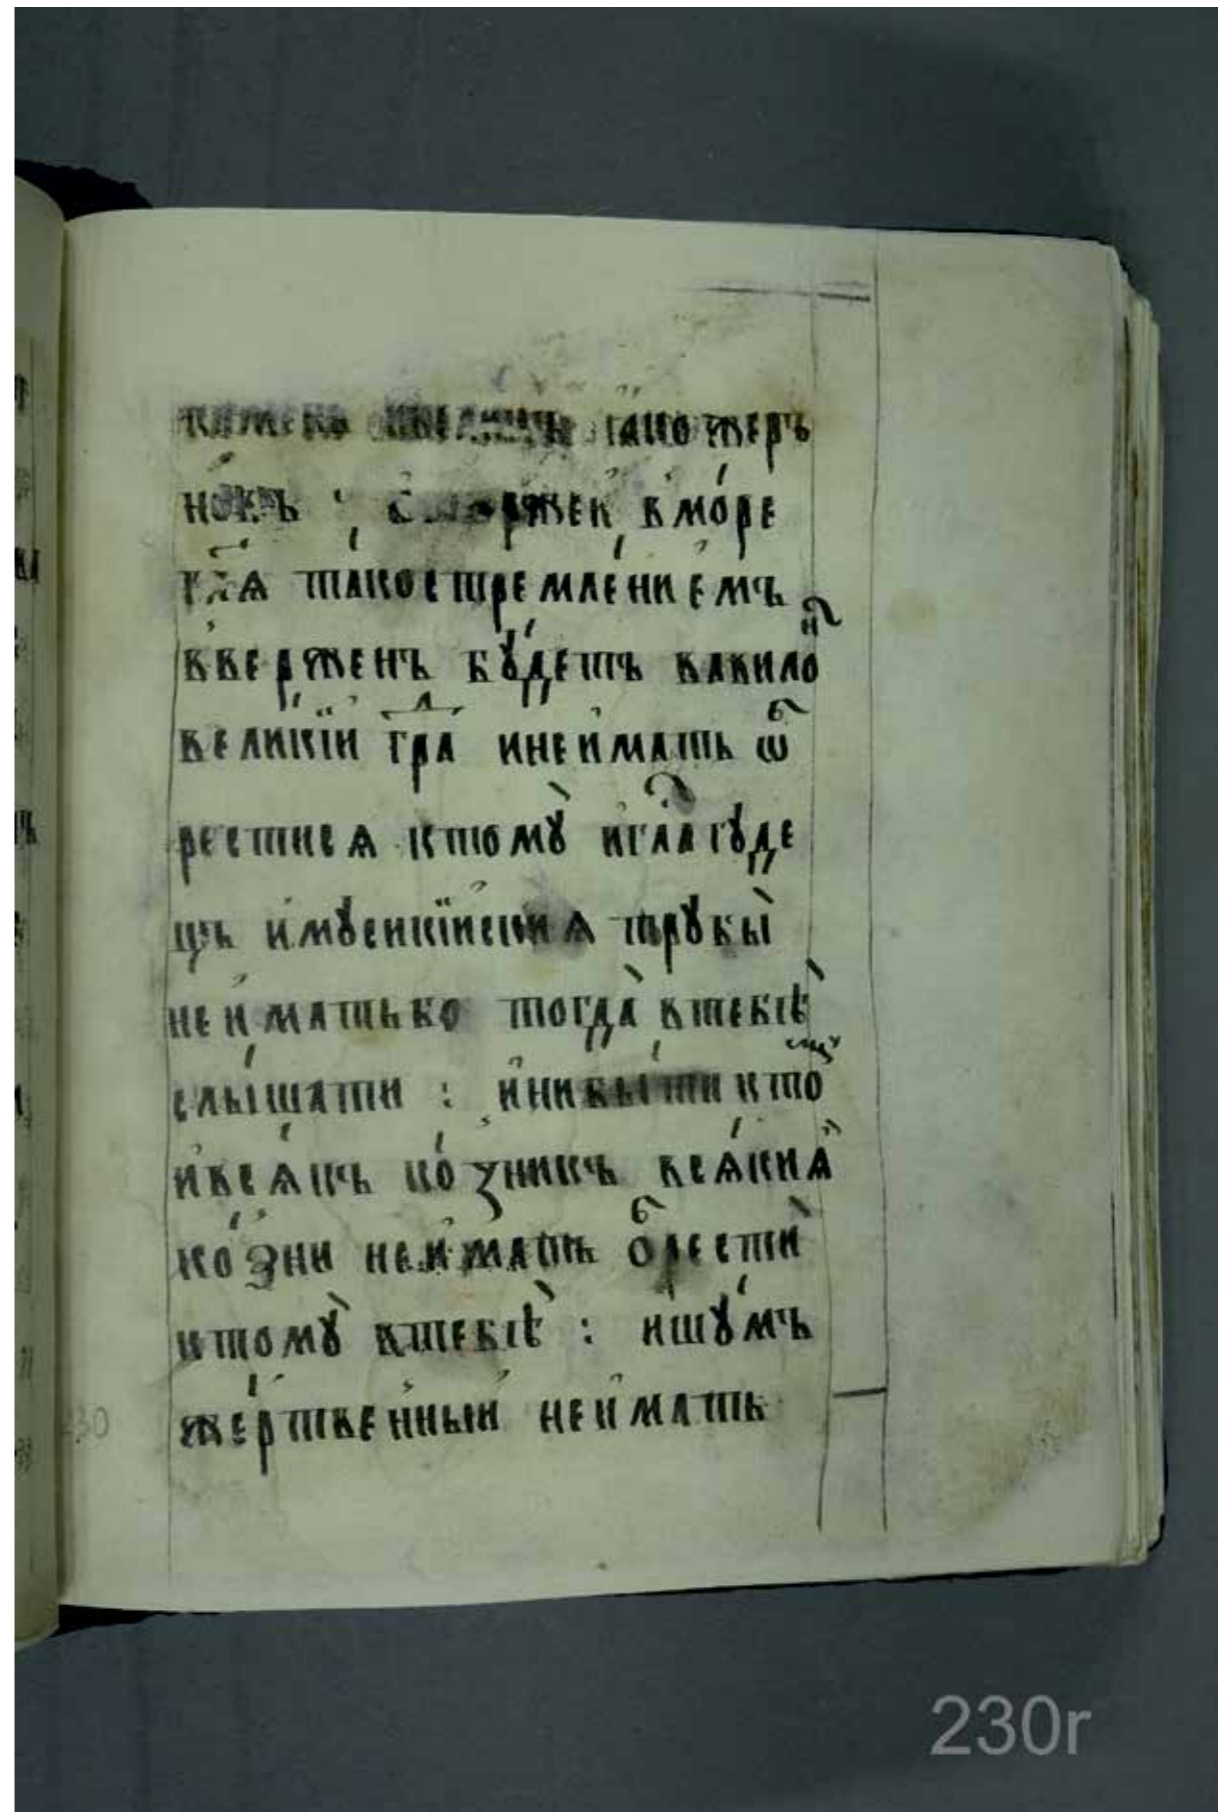 камень великъ яко жер
новъ : в море
гл҃я тако стремленїемъ
вверженъ бꙋдетъ вавилоⷩ҇
великїи граⷣ и не имать ѡ҆б
рестисѧ ктомꙋ и гла гꙋде
цъ и мꙋсикїискиѧ трꙋбы
не имать бо тогда в тебѣ
слышати : и ни кто
и всѧкъ коꙁникъ всѧкиѧ
коꙁни не имать обрести
ктомꙋ в тебѣ : и шꙋмъ
жертвенныи не имать
230
230r